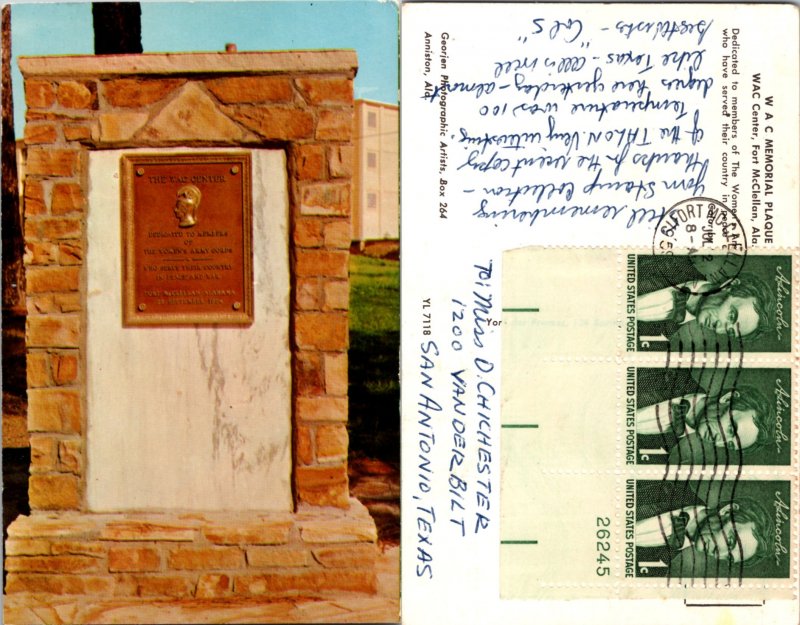 THE WAC CENTER
DEDICATED TO MEMBERS
OF
THE WOMEN'S ARMY CORPS
WHO SERVE THEIR COUNTRY
IN PEACE AND WAR
FORT McCLELLAN ALABAMA
Georjen Photographic Artists, Box 264
Anniston, Ala.
YL 7118
WAC MEMORIAL PLAQUE
WAC Center, Fort McClellan, Ala.
Dedicated to members of The Women's
who have served their country in
Still remembering
your Stamp Collection -
thanks for the recent copy
of the TALON. Very interesting.
Temperature was 100
degrees here yesterday - almost
like Texas - All is well
Best Wishes - "Col S"
To: Miss D. CHICHESTER
1200 VANDERBILT
SAN ANTONIO, TEXAS
FORT
8 - A
A. Lincoln
UNITED STATES POSTAGE
1c
A. Lincoln
UNITED STATES POSTAGE
1c
A. Lincoln
UNITED STATES POSTAGE
1c
26245